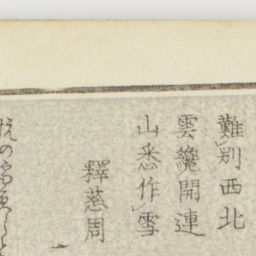 難別西北
雲纔開連
山悉作雪
釋慈周